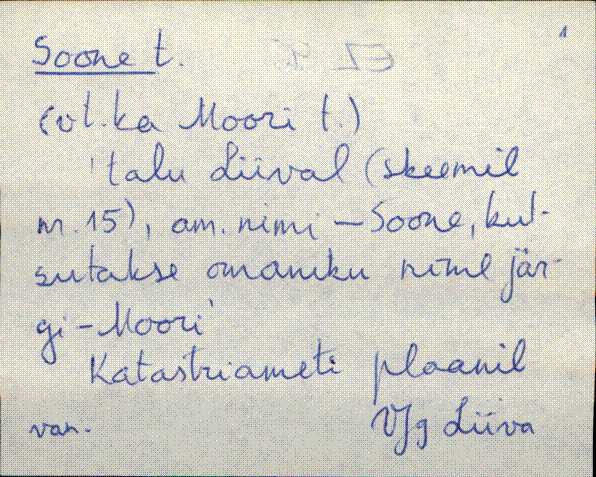 1
Soone t.
(vt. ka Moori t.)
'talu Liival (skeemil
nr. 15), am. nimi – Soone, kut-
sutakse omaniku nime jär-
gi – Moori'
Katastriameti plaanil
van. VJg Liiva